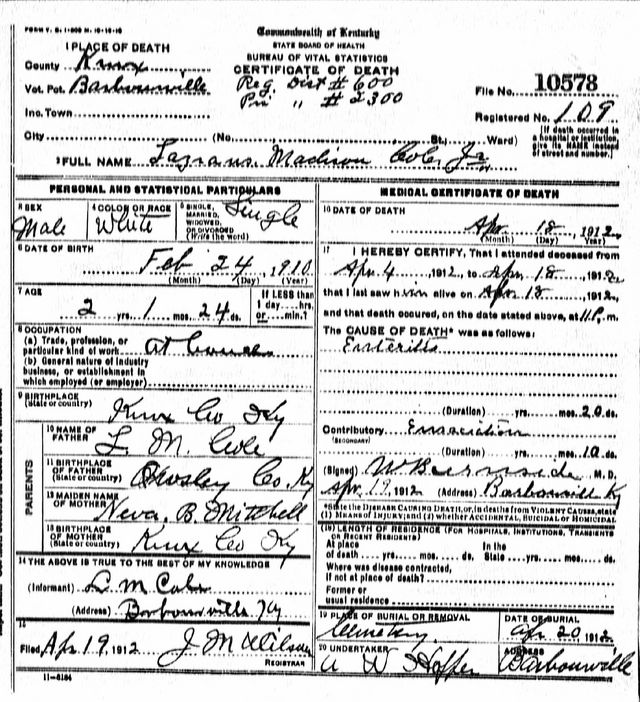 FORM V. S. 1-
Commonwealth of Kentucky
STATE BOARD OF HEALTH
BUREAU OF VITAL STATISTICS
CERTIFICATE OF DEATH
1 PLACE OF DEATH
County Knox
Vot. Pct. Barbourville
Inc. Town
City (No. St., Ward)
Reg. Dist # 600
Pri " # 2300
File No. 10578
Registered No. 109
[If death occurred in a hospital or institution, give its NAME instead of street and number.]
2 FULL NAME Madison Cole Jr
PERSONAL AND STATISTICAL PARTICULARS
3 SEX
Male
4 COLOR OR RACE
White
5 SINGLE, MARRIED, WIDOWED, OR DIVORCED (Write the word)
Single
6 DATE OF BIRTH
Feb 24, 1910
(Month) (Day) (Year)
7 AGE
2 yrs. 1 mos. 24 ds.
If LESS than 1 day....hrs. or....min.?
8 OCCUPATION
(a) Trade, profession, or particular kind of work at
(b) General nature of industry business, or establishment in which employed (or employer)
9 BIRTHPLACE
(State or country)
Knox Co Ky
PARENTS
10 NAME OF FATHER
L. M. Cole
11 BIRTHPLACE OF FATHER
(State or country)
Owsley Co. Ky
12 MAIDEN NAME OF MOTHER
Neva B. Mitchell
13 BIRTHPLACE OF MOTHER
(State or country)
Knox Co Ky
14 THE ABOVE IS TRUE TO THE BEST OF MY KNOWLEDGE
(Informant) L M Cole
(Address) Barbourville Ky
15
Filed Apr 19, 1912 J. M. Wilson
REGISTRAR
11-8184
MEDICAL CERTIFICATE OF DEATH
16 DATE OF DEATH
Apr 18, 1912
(Month) (Day) (Year)
17 I HEREBY CERTIFY, That I attended deceased from
Apr. 4, 1912, to Apr. 18, 1912,
that I last saw him alive on Apr 18, 1912,
and that death occured, on the date stated above, at 11 P. m.
The CAUSE OF DEATH* was as follows:
Enteritis
(Duration) yrs. mos. 20 ds.
Contributory Emaciation
(SECONDARY)
(Duration) yrs. mos. 10 ds.
(Signed) W Burnside M. D.
Apr. 19, 1912 (Address) Barbourvill Ky
*State the DISEASE CAUSING DEATH, or, in deaths from VIOLENT CAUSES, state (1) MEANS OF INJURY; and (2) whether ACCIDENTAL, SUICIDAL or HOMICIDAL
18 LENGTH OF RESIDENCE (FOR HOSPITALS, INSTITUTIONS, TRANSIENTS OR RECENT RESIDENTS)
At place of death yrs. mos. ds. In the State yrs. mos. ds.
Where was disease contracted, If not at place of death?
Former or usual residence
19 PLACE OF BURIAL OR REMOVAL
Cemetery.
DATE OF BURIAL
Apr. 20, 1912
20 UNDERTAKER
A W Hopper
ADDRESS
Barbourville